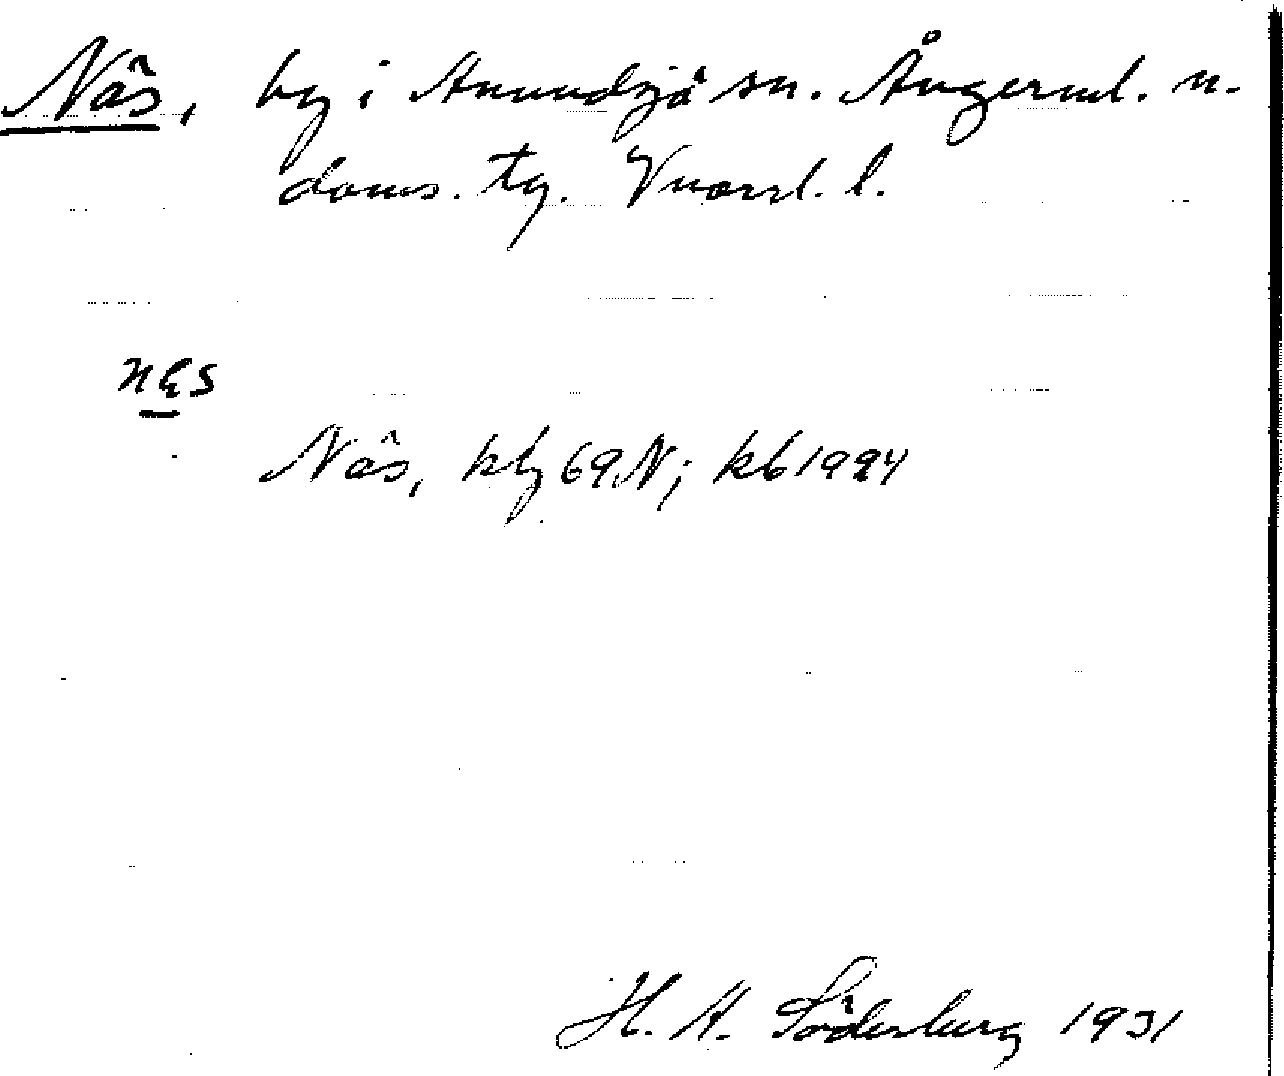 Näs, by i Anundsjö sn. Ångerml. n.
doms. tg. Vnorrl. l.
nęs
Näs, kbg 69N; kb 1924
H. A. Söderberg 1931